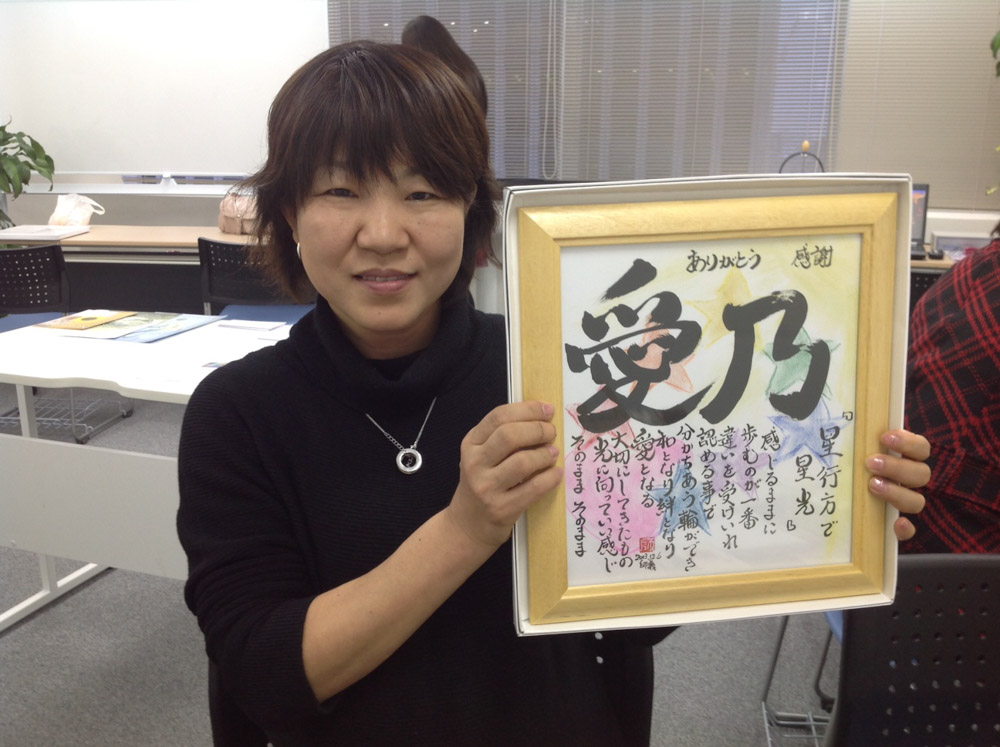 ありがとう 感謝
愛乃
「星行方で
星光」
感じるままに
歩むのが一番
違いを受けいれ
認める事で
分かちあう輪ができ
和となり絆となり
愛となる
大切にしてきたもの
光に向っていい感じ
そのまま そのまま